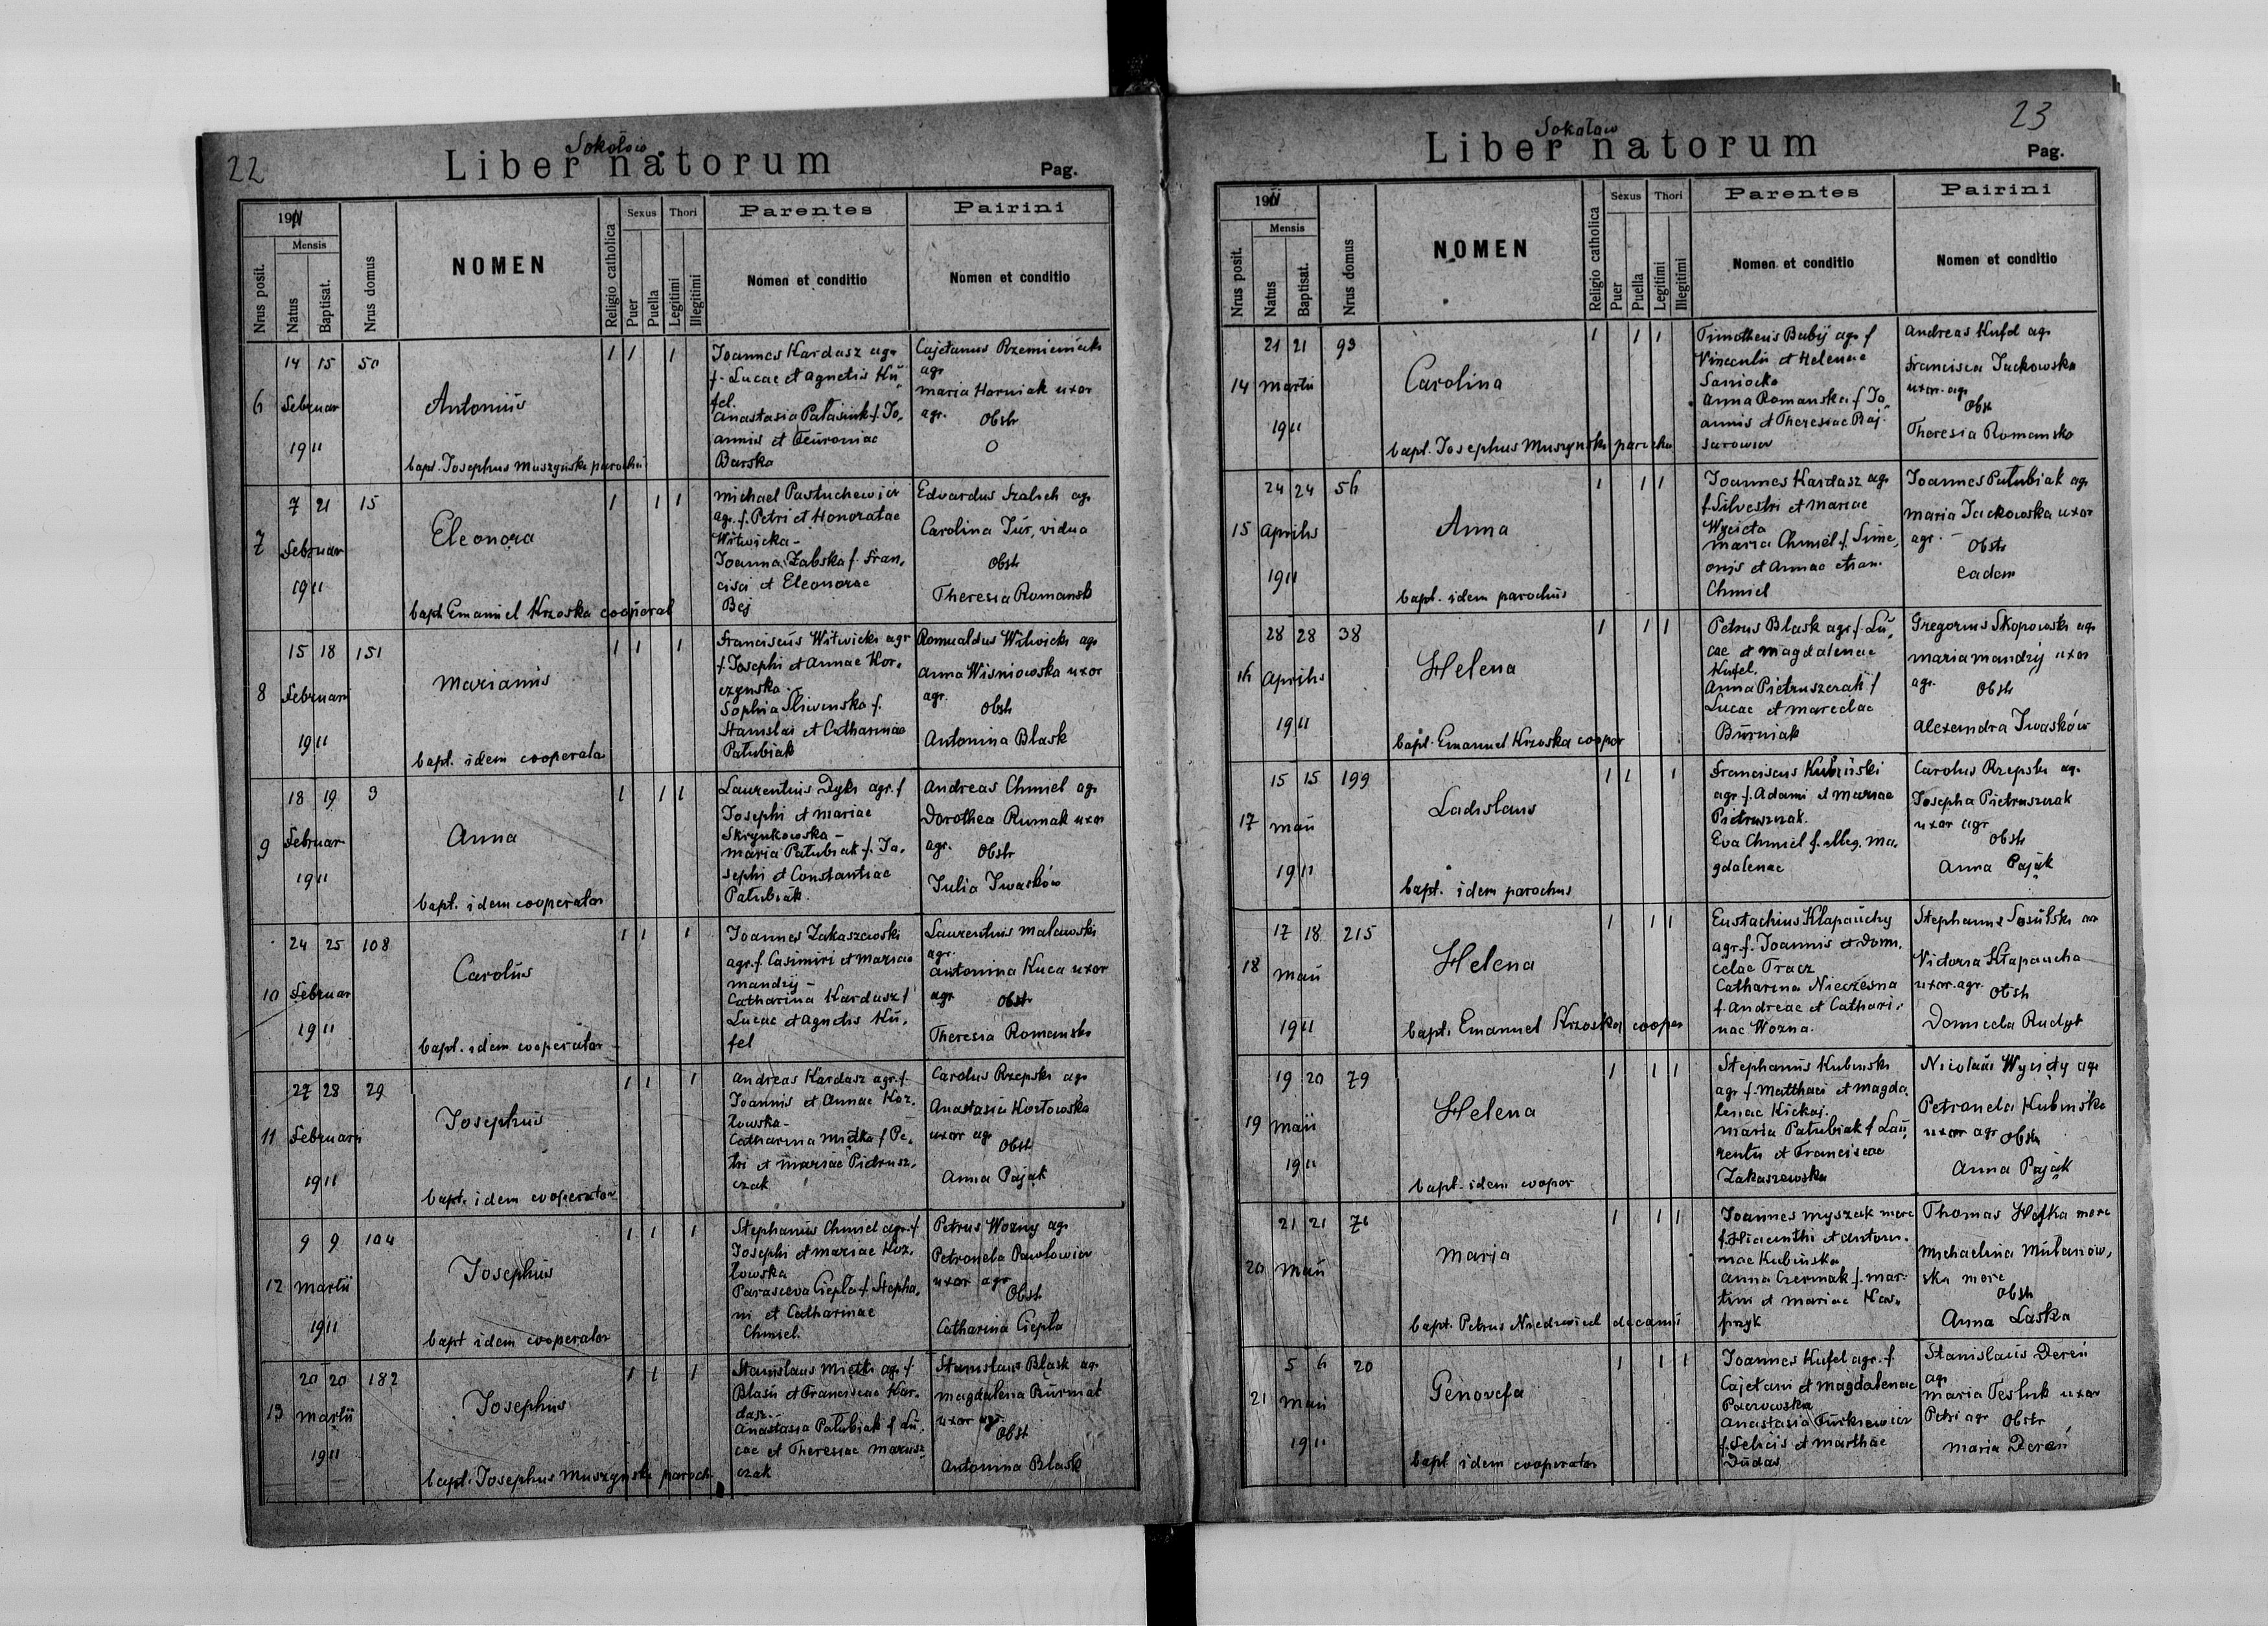 22
Sokołów
Liber natorum
Pag.
1911
Nrus posit.
Mensis
Natus
Baptisat.
Nrus domus
NOMEN
Religio catholica
Sexus
Puer
Puella
Thori
Legitimi
Illegitimi
Parentes
Nomen et conditio
Pairini
Nomen et conditio
6
14 15 50
Februar
1911
Antonius
bapt. Josephus Muszyński parochus
1 1 1
Joannes Kardasz agr
f. Lucae et Agnetis Ku,
fel.
Anastasia Patasiuk f. Jo,
annis et Feuroniae
Barska
Cajetanus Rzemieniecki
agr
Maria Horniak uxor
agr. Obstr
O
7
7 21 15
Februar
1911
Eleonora
bapt Emanuel Krzoska cooperat
1 1 1
Michael Pastuchewicz
agr. f. Petri et Honoratae
Witwicka -
Joanna Żabska f. Fran,
cisci et Eleonorae
Bej
Edvardus Szalsch agr
Carolina Jur, vidua
Obstr
Theresia Romansk
8
15 18 151
Februari
1911
Marianus
bapt. idem cooperato
1 1 1
Franciscus Witwicki agr
f. Josephi et Annae Kor,
czynska -
Sophia Sliwinska f.
Stanislai et Catharinae
Patubiak
Romualdus Witwicki agr
Anna Wisniowska uxor
agr.
Obstr
Antonina Blask
9
18 19 3
Februar
1911
Anna
bapt. idem cooperator
1 1 1
Laurentius Dyki agr. f
Josephi et Mariae
Skrynkowska -
Maria Patubiak f. Jo,
sephi et Constantiae
Patubiak.
Andreas Chmiel agr
Dorothea Rumak uxor
agr. Obstr
Julia Iwasków
10
24 25 108
Februar
1911
Carolus
bapt. idem cooperator
1 1 1
Joannes Zakaszewski
agr. f Casimiri et Mariae
Mandzij -
Catharina Kardasz f
Lucae et Agnetis Ku,
fel
Laurentius Malewski
agr.
Antonina Kuca uxor
agr Obstr
Theresia Romanska
11
27 28 29
Februari
1911
Josephus
bapt. idem cooperator
1 1 1
Andreas Kardasz agr. f.
Joannis et Annae Koz,
łowska -
Catharina Mietka f Pe,
tri et Mariae Pietrusz,
czak
Carolus Rzepski agr
Anastasia Kozłowska
uxor agr
Obstr
Anna Pająk
12
9 9 104
Martii
1911
Josephus
bapt idem cooperator
1 1 1
Stephanus Chmiel agr. f
Josephi et Mariae Koz,
łowska
Parasceva Ciepła f. Stepha,
ni et Catharinae
Chmiel.
Petrus Wozny agr
Petronela Pawłowicz
uxor agr
Obstr
Catharina Ciepła
13
20 20 182
Martii
1911
Josephus
bapt. Josephus Muszyński paroch
1 1 1
Stanislaus Mietki agr. f
Blasii et Franciscae Kar,
dasz -
Anastasia Patubiak f Lu,
cae et Theresiae Marusz
czak
Stanislaus Blask agr
Magdalena Burniak
uxor agr.
Obstr
Antonina Blask
23
Sokołow
Liber natorum
Pag.
1911
Nrus posit.
Mensis
Natus
Baptisat.
Nrus domus
NOMEN
Religio catholica
Sexus
Puer
Puella
Thori
Legitimi
Illegitimi
Parentes
Nomen et conditio
Pairini
Nomen et conditio
14
21 21 93
Martii
1911
Carolina
bapt. Josephus Muszynski parochu
1 1 1
Timotheus Babij agr f
Vincentii et Helenae
Sanocka
Anna Romanska f Jo
annis et Theresiae Baj
sarowicz
Andreas Kufel agr
Francisca Jackowska
uxor. agr
Obst
Theresia Romanska
15
24 24 56
Aprilis
1911
Anna
bapt. idem parochus
1 1 1
Joannes Kardasz agr
f Silvestri et Mariae
Wycięta
Maria Chmiel f. Sime,
onis et Annae etiam
Chmiel
Joannes Patubiak agr
Maria Jackowska uxor
agr. - Obstr
eadem
16
28 28 38
Aprilis
1911
Helena
bapt. Emanuel Krzoska cooper
1 1 1
Petrus Blask agr f. Lu,
cae et Magdalenae
Kufel.
Anna Pietruszczak f
Lucae et Mareclae
Burniak
Gregorius Skopowski agr
Maria Mandzij uxor
agr. Obstr
Alexandra Iwasków
17
15 15 199
Maii
1911
Ladislaus
bapt. idem parochus
1 1 1
Franciscus Kubiński
agr f. Adami et Mariae
Pietruszczak.
Eva Chmiel f. illeg. Ma,
gdalenae
Carolus Rzepski agr
Josepha Pietruszczak
uxor agr
Obstr
Anna Pająk
18
17 18 215
Maii
1911
Helena
bapt. Emanuel Krzoska cooper
1 1 1
Eustachius Kłapauchy
agr. f. Joannis et Domi,
celae Tracz
Catharina Niewczesna
f. Andreae et Cathari,
nae Wozna.
Stephanus Sosulski
Victoria Kłapaucha
uxor. agr. Obstr
Domicela Rudyk
19
19 20 79
Maii
1911
Helena
bapt. idem cooper
1 1 1
Stephanus Kubinski
agr f. Matthaei et Magda,
lenae Kickaj.
Maria Patubiak f Lau,
rentii et Franciscae
Zakaszewska
Nicolaus Wycięty agr
Petronela Kubinska
uxor agr Obstr
Anna Pająk
20
21 21 76
Maii
1911
Maria
bapt. Petrus Niedzwiecl decanus
1 1 1
Joannes Myszak merc
f. Hiacinthi et Antoni,
nae Kubińska
Anna Czermak f. Mar,
tini et Mariae Kas,
przyk
Thomas Hefka merc
Michaelina Mulanow,
ska merc
Obstr
Anna Laska
21
5 6 20
Maii
1911
Genovefa
bapt idem cooperator
1 1 1
Joannes Kufel agr. f
Cajetani et Magdalenae
Paczowska
Anastasia Turkiewicz
f. Felicis et Marthae
Dudas
Stanislaus Dereń
agr
Maria Tesluk uxor
Petri agr Obstr
Maria Dereń